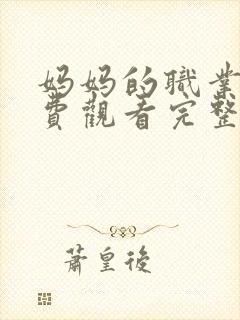 妈妈的職業
費觀看完整
蕭皇後